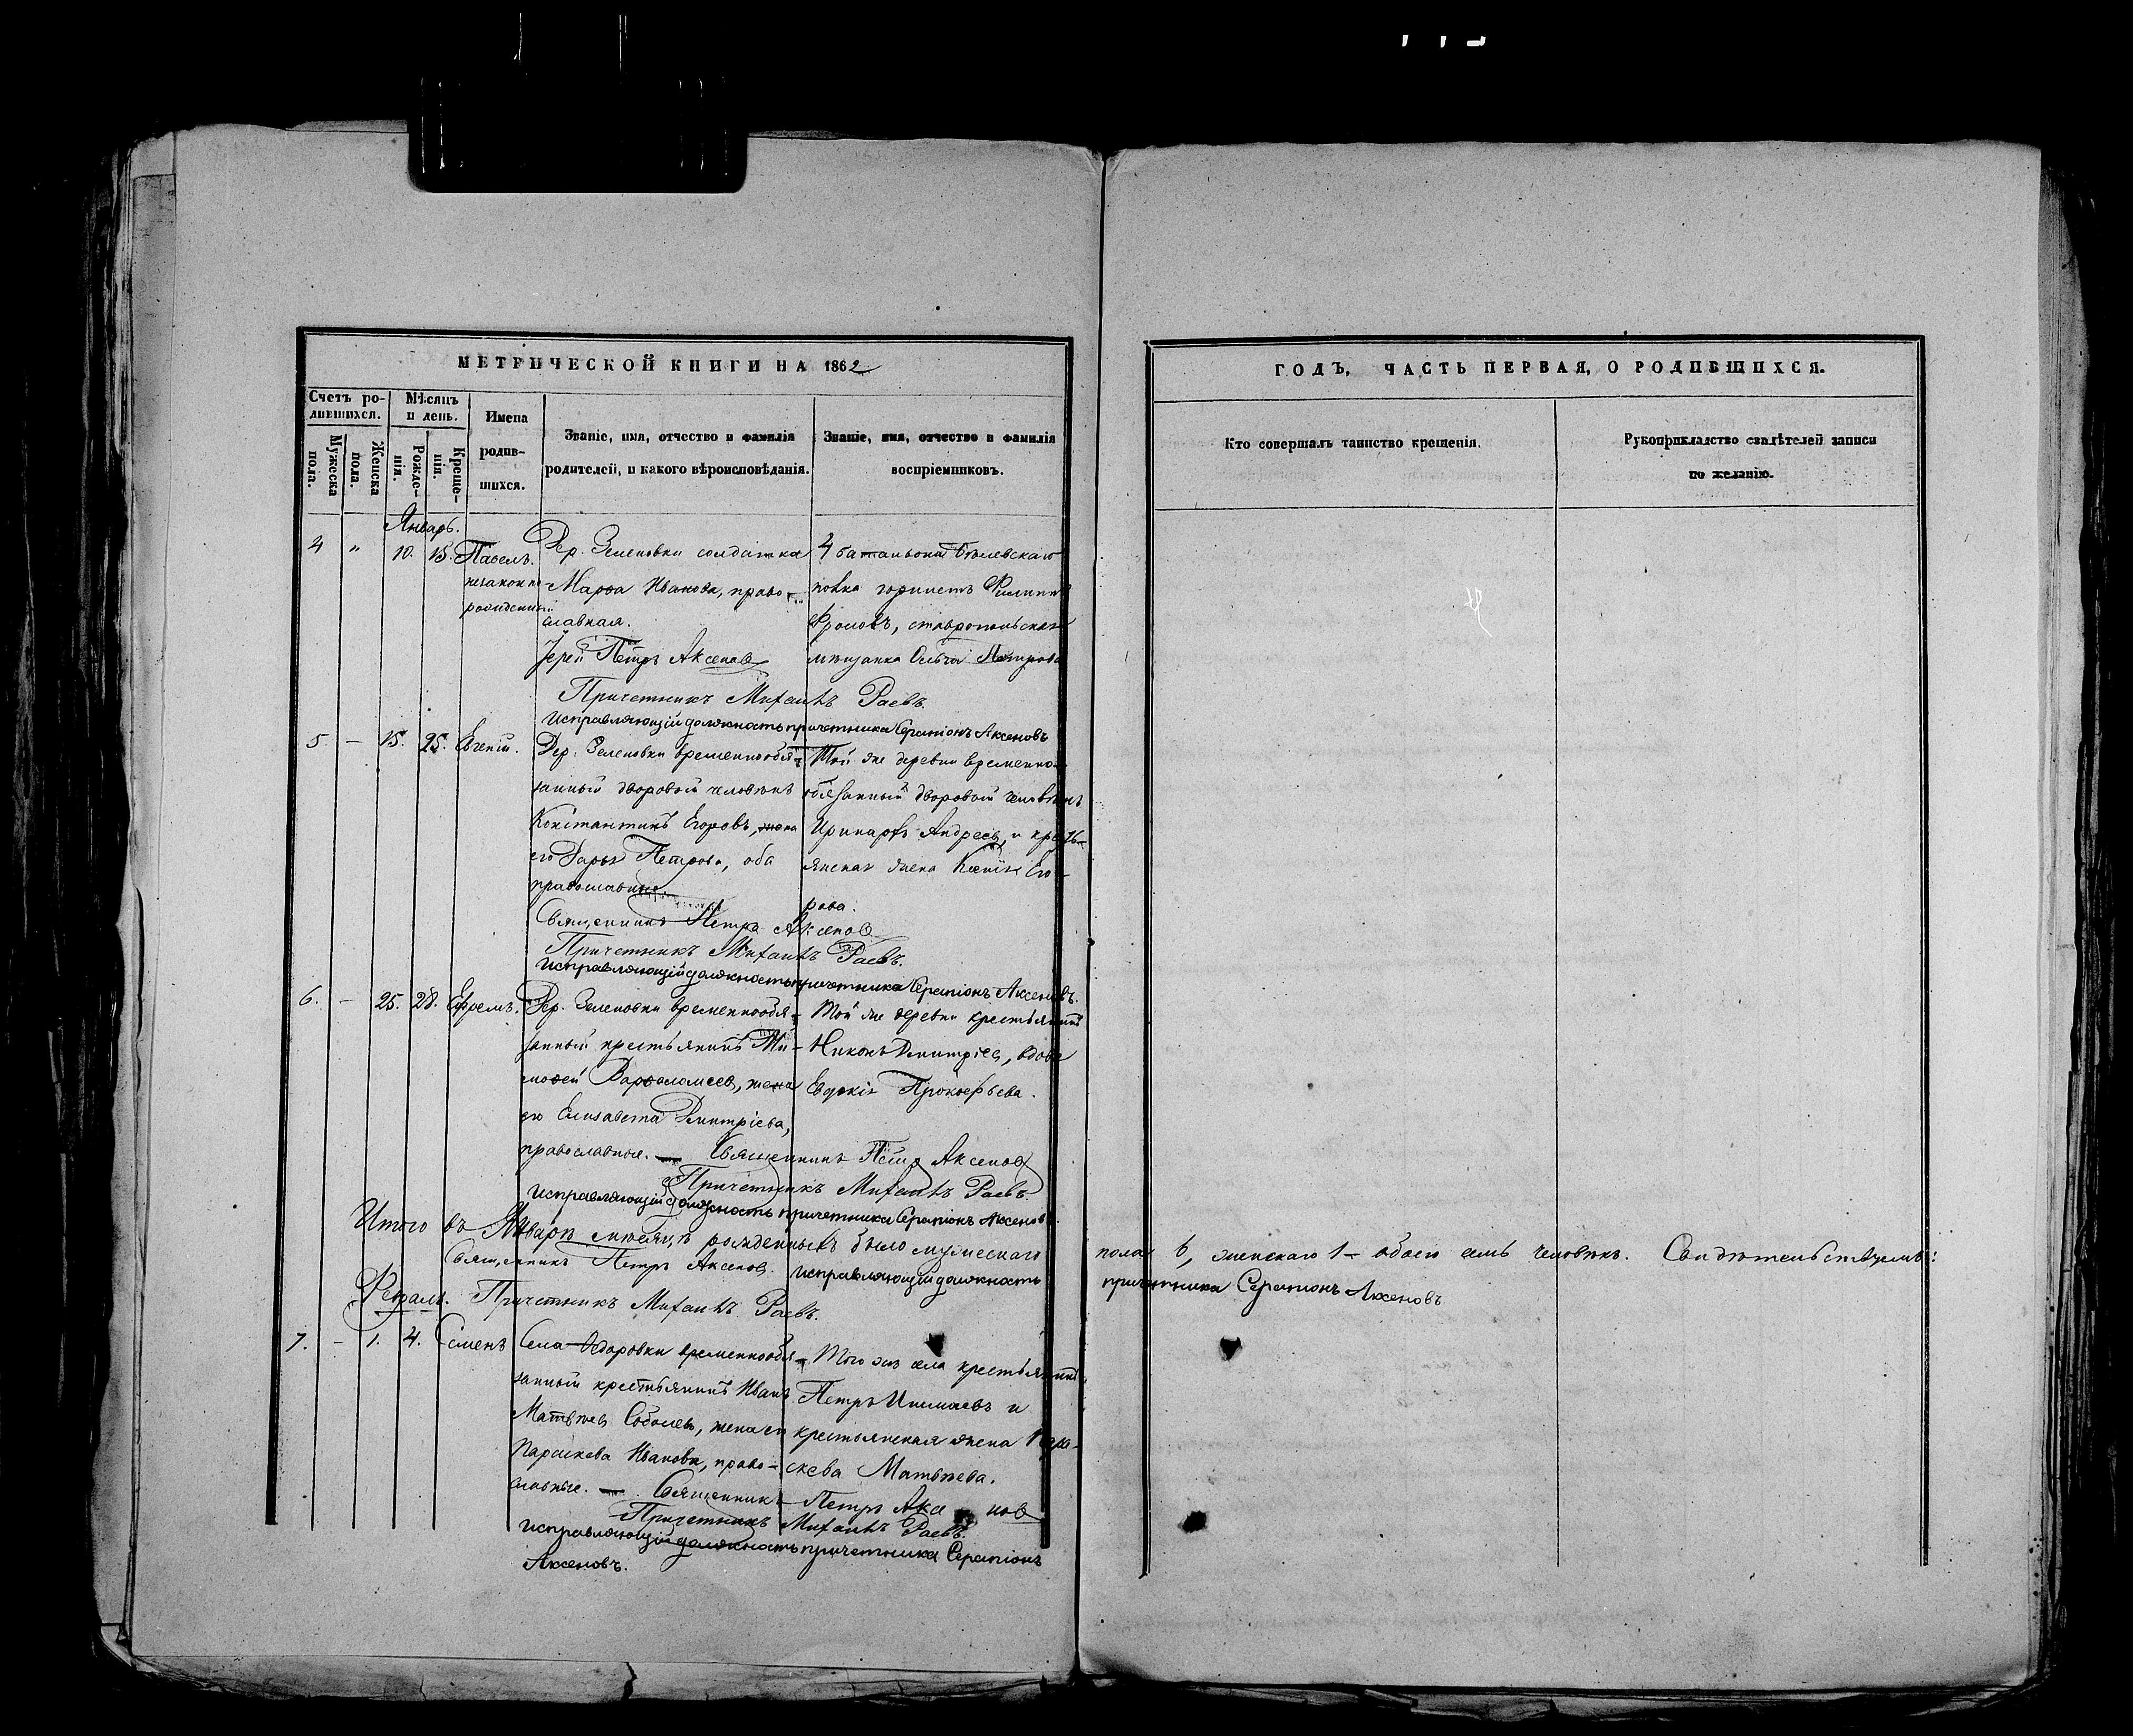 МЕТРИЧЕСКОЙ КНИГИ НА 1862
ГОДЪ, ЧАСТЬ ПЕРВАЯ, О РОДИВШИХСЯ.
Счетъ ро-
дившихся.
Мужеска
пола.
Женска
пола.
Мѣсяцъ
и день.
Рожде-
нія.
Креще-
нія.
Имена
родив-
шихся.
Званіе, имя, отчество и фамилія
родителей, и какого вѣроисповѣданія.
Званіе, имя, отчество и фамилія
воспріемниковъ.
Кто совершалъ таинство крещенія.
Рукоприкладство свидѣтелей записи
по желанію.
Январь.
4 " 10. 15. Павелъ. Дер. Зеленовки солдатка 4 баталіона Бѣлевскаго
незаконно- Марѳа Иванова, право- полка горнистъ Филиппъ
рожденный славная. Фроловъ, ставропольская
Іерей Петръ Аксеновъ мѣщанка Ольга Петрова
Причетникъ Михаилъ Раевъ.
Исправляющій должность причетника Серапіонъ Аксеновъ
5 – 15. 25. Евгеній. Дер. Зеленовки временнообя- Той же деревни временно-
занный дворовой человѣкъ обязанный дворовой человѣкъ
Константинъ Егоровъ, жена Иринархъ Андреевъ и кресть-
его Дарья Петрова, оба янская жена Ксенія Его-
православные. рова.
Священникъ Петръ Аксеновъ
Причетникъ Михаилъ Раевъ.
Исправляющій должность причетника Серапіонъ Аксеновъ.
6. – 25. 28. Ефремъ. Дер. Зеленовки временнообя- Той же деревни крестьянинъ
занный крестьянинъ Ти- Никонъ Димитріевъ, вдова
моѳей Варѳаломеевъ, жена Евдокія Прокофьева.
его Елизавета Димитріева,
православные. — Священникъ Петръ Аксеновъ
Причетникъ Михаилъ Раевъ.
Исправляющій должность причетника Серапіонъ Аксеновъ.
Итого въ Январѣ мѣсяцѣ рожденныхъ было мужескаго пола 6, женскаго 1 – обоего семь человѣкъ. Свидѣтельствуемъ:
Священникъ Петръ Аксеновъ. Исправляющій должность причетника Серапіонъ Аксеновъ
Февраль. Причетникъ Михаилъ Раевъ.
7. – 1. 4. Семенъ Села Ѳедоровки временнообя- Того же села крестьянинъ
занный крестьянинъ Иванъ Петръ и
Матвѣевъ Соболевъ, жена его крестьянская жена Пара-
Параскева Иванова, право- скева Матвѣева.
славные. — Священникъ Петръ Аксеновъ
Причетникъ Михаилъ Раевъ.
Исправляющій должность причетника Серапіонъ
Аксеновъ.